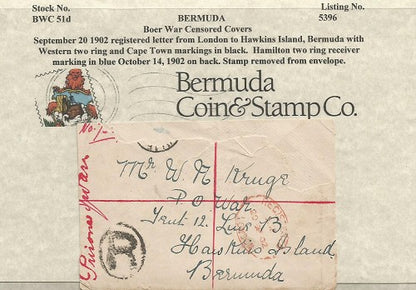 Stock No. BERMUDA Listing No.
BWC 51d Boer War Censored Covers 5396
September 20 1902 registered letter from London to Hawkins Island, Bermuda with
Western two ring and Cape Town markings in black. Hamilton two ring receiver
marking in blue October 14, 1902 on back. Stamp removed from envelope.
Bermuda
Coin&Stamp Co.
No.
Prisoner of War
Mr W N Kruge
P O War
Tent 12. Line B
Hawkins Island
Bermuda
R